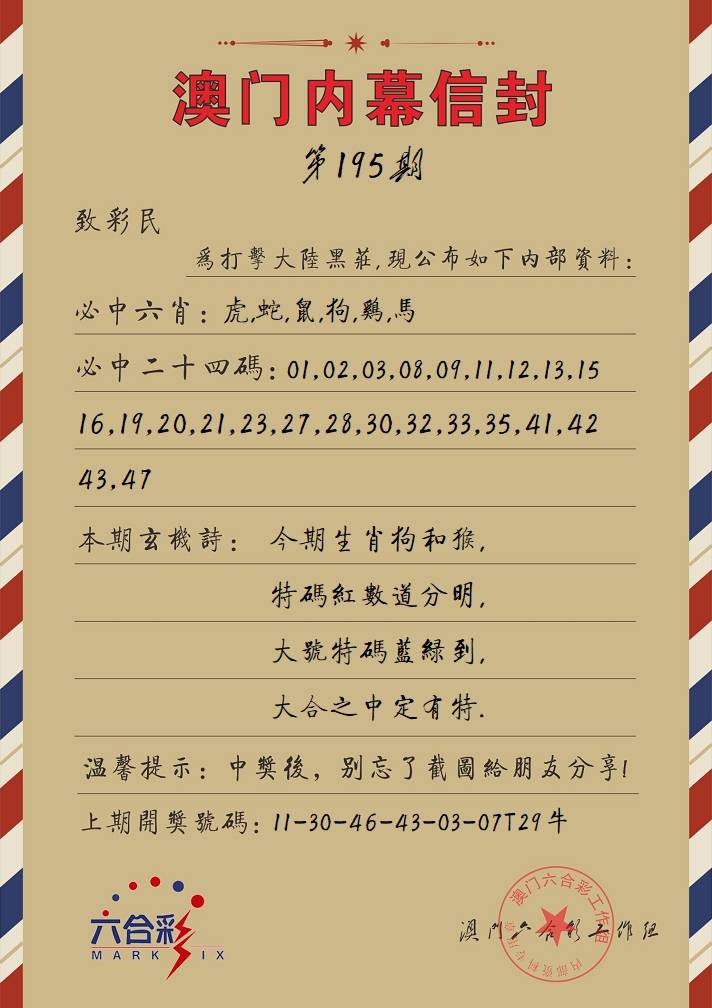 澳门内幕信封
第195期
致彩民
爲打擊大陸黑莊,現公布如下内部資料:
必中六肖: 虎,蛇,鼠,狗,鷄,馬
必中二十四碼: 01,02,03,08,09,11,12,13,15
16,19,20,21,23,27,28,30,32,33,35,41,42
43,47
本期玄機詩: 今期生肖狗和猴,
特碼紅數道分明,
大號特碼藍綠到,
大合之中定有特.
温馨提示: 中獎後, 别忘了截圖給朋友分享!
上期開獎號碼: 11-30-46-43-03-07T29牛
六合彩
MARK SIX
澳门六合彩工作组
澳门六合彩工作组
内部资料专用章